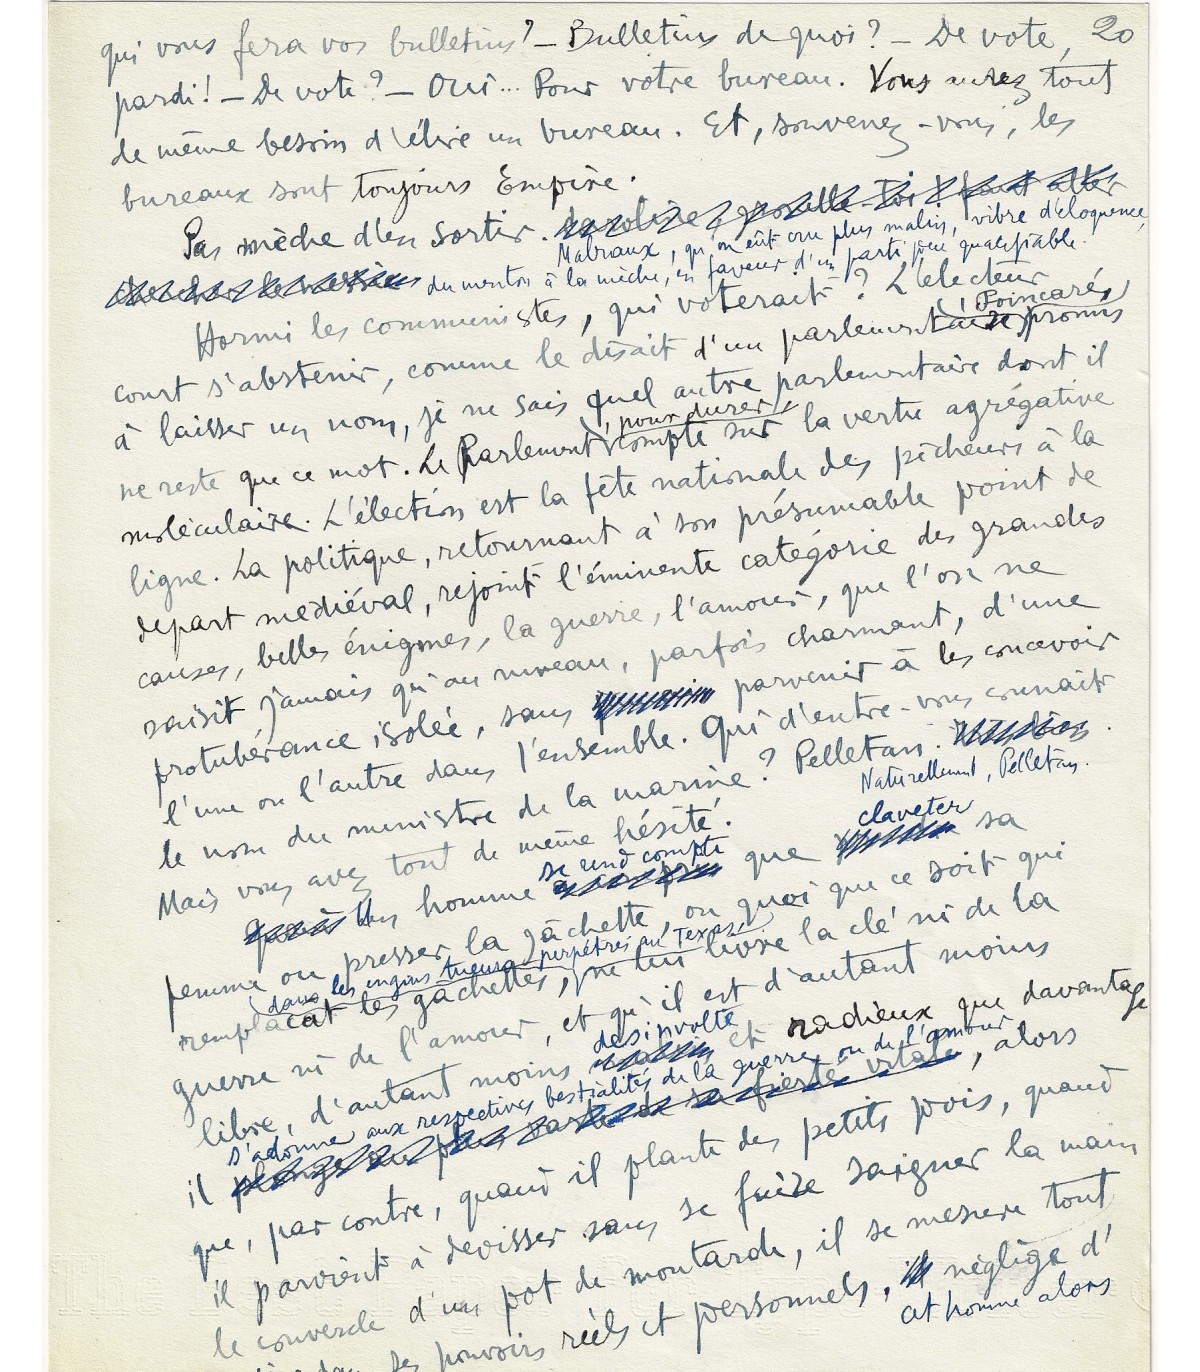 qui vous fera vos bulletins? – Bulletins de quoi? – De vote, 20
pardi! – De vote? – Oui... Pour votre bureau. Vous aurez tout
de même besoin d'élire un bureau. Et, souvenez-vous, les
bureaux sont toujours Empire.
Pas mèche d'en sortir.
Malraux, qu'on eût cru plus malin, vibre d'éloquence,
du menton à la mèche, en faveur d'un parti peu qualifiable.
Hormi les communistes, qui voterait? L'électeur
, Poincaré,
court s'abstenir, comme le disait d'un parlementaire promis
à laisser un nom, je ne sais quel autre parlementaire dont il
, pour durer,
ne reste que ce mot. Le Parlement compte sur la vertu agrégative
moléculaire. L'élection est la fête nationale des pêcheurs à la
ligne. La politique, retournant à son présumable point de
départ médiéval, rejoint l'éminente catégorie des grandes
causes, belles énigmes, la guerre, l'amour, que l'on ne
saisit jamais qu'au niveau, parfois charmant, d'une
protubérance isolée, sans parvenir à les concevoir
l'une ou l'autre dans l'ensemble. Qui d'entre-vous connaît
le nom du ministre de la marine? Pelletan.
Naturellement, Pelletan.
Mais vous avez tout de même hésité.
se rend compte claveter
Un homme que sa
femme ou presser la gâchette, ou quoi que ce soit qui
dans les engins tueurs perpétrés au Texas
remplaçat les gâchettes, ne lui livre la clé ni de la
guerre ni de l'amour, et qu'il est d'autant moins
désinvolte
libre, d'autant moins et radieux que davantage
s'adonne aux respectives bestialités de la guerre ou de l'amour
il , alors
que, par contre, quand il plante des petits pois, quand
il parvient à dévisser sans se faire saigner la main
le couvercle d'un pot de moutarde, il se mesure tout
dans ses pouvoirs réels et personnels, néglige d'
cet homme alors